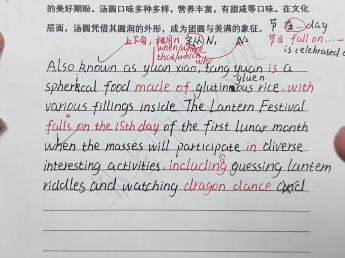 的美好期盼。汤圆口味多种多样，营养丰富，有甜咸等口味。在文化
层面，汤圆凭借其圆润的外形，成为团圆与美满的象征。
节 在...day
节日 fall on...
is celebrated
when/where
that/which
who
Also known as yuan xiao, tang yuan is a
gluen
spherical food made of glutinous rice, with
various fillings inside. The Lantern Festival
falls on the 15th day of the first lunar month
when the masses will participate in diverse
interesting activities, including guessing lantern
riddles and watching dragon dance and